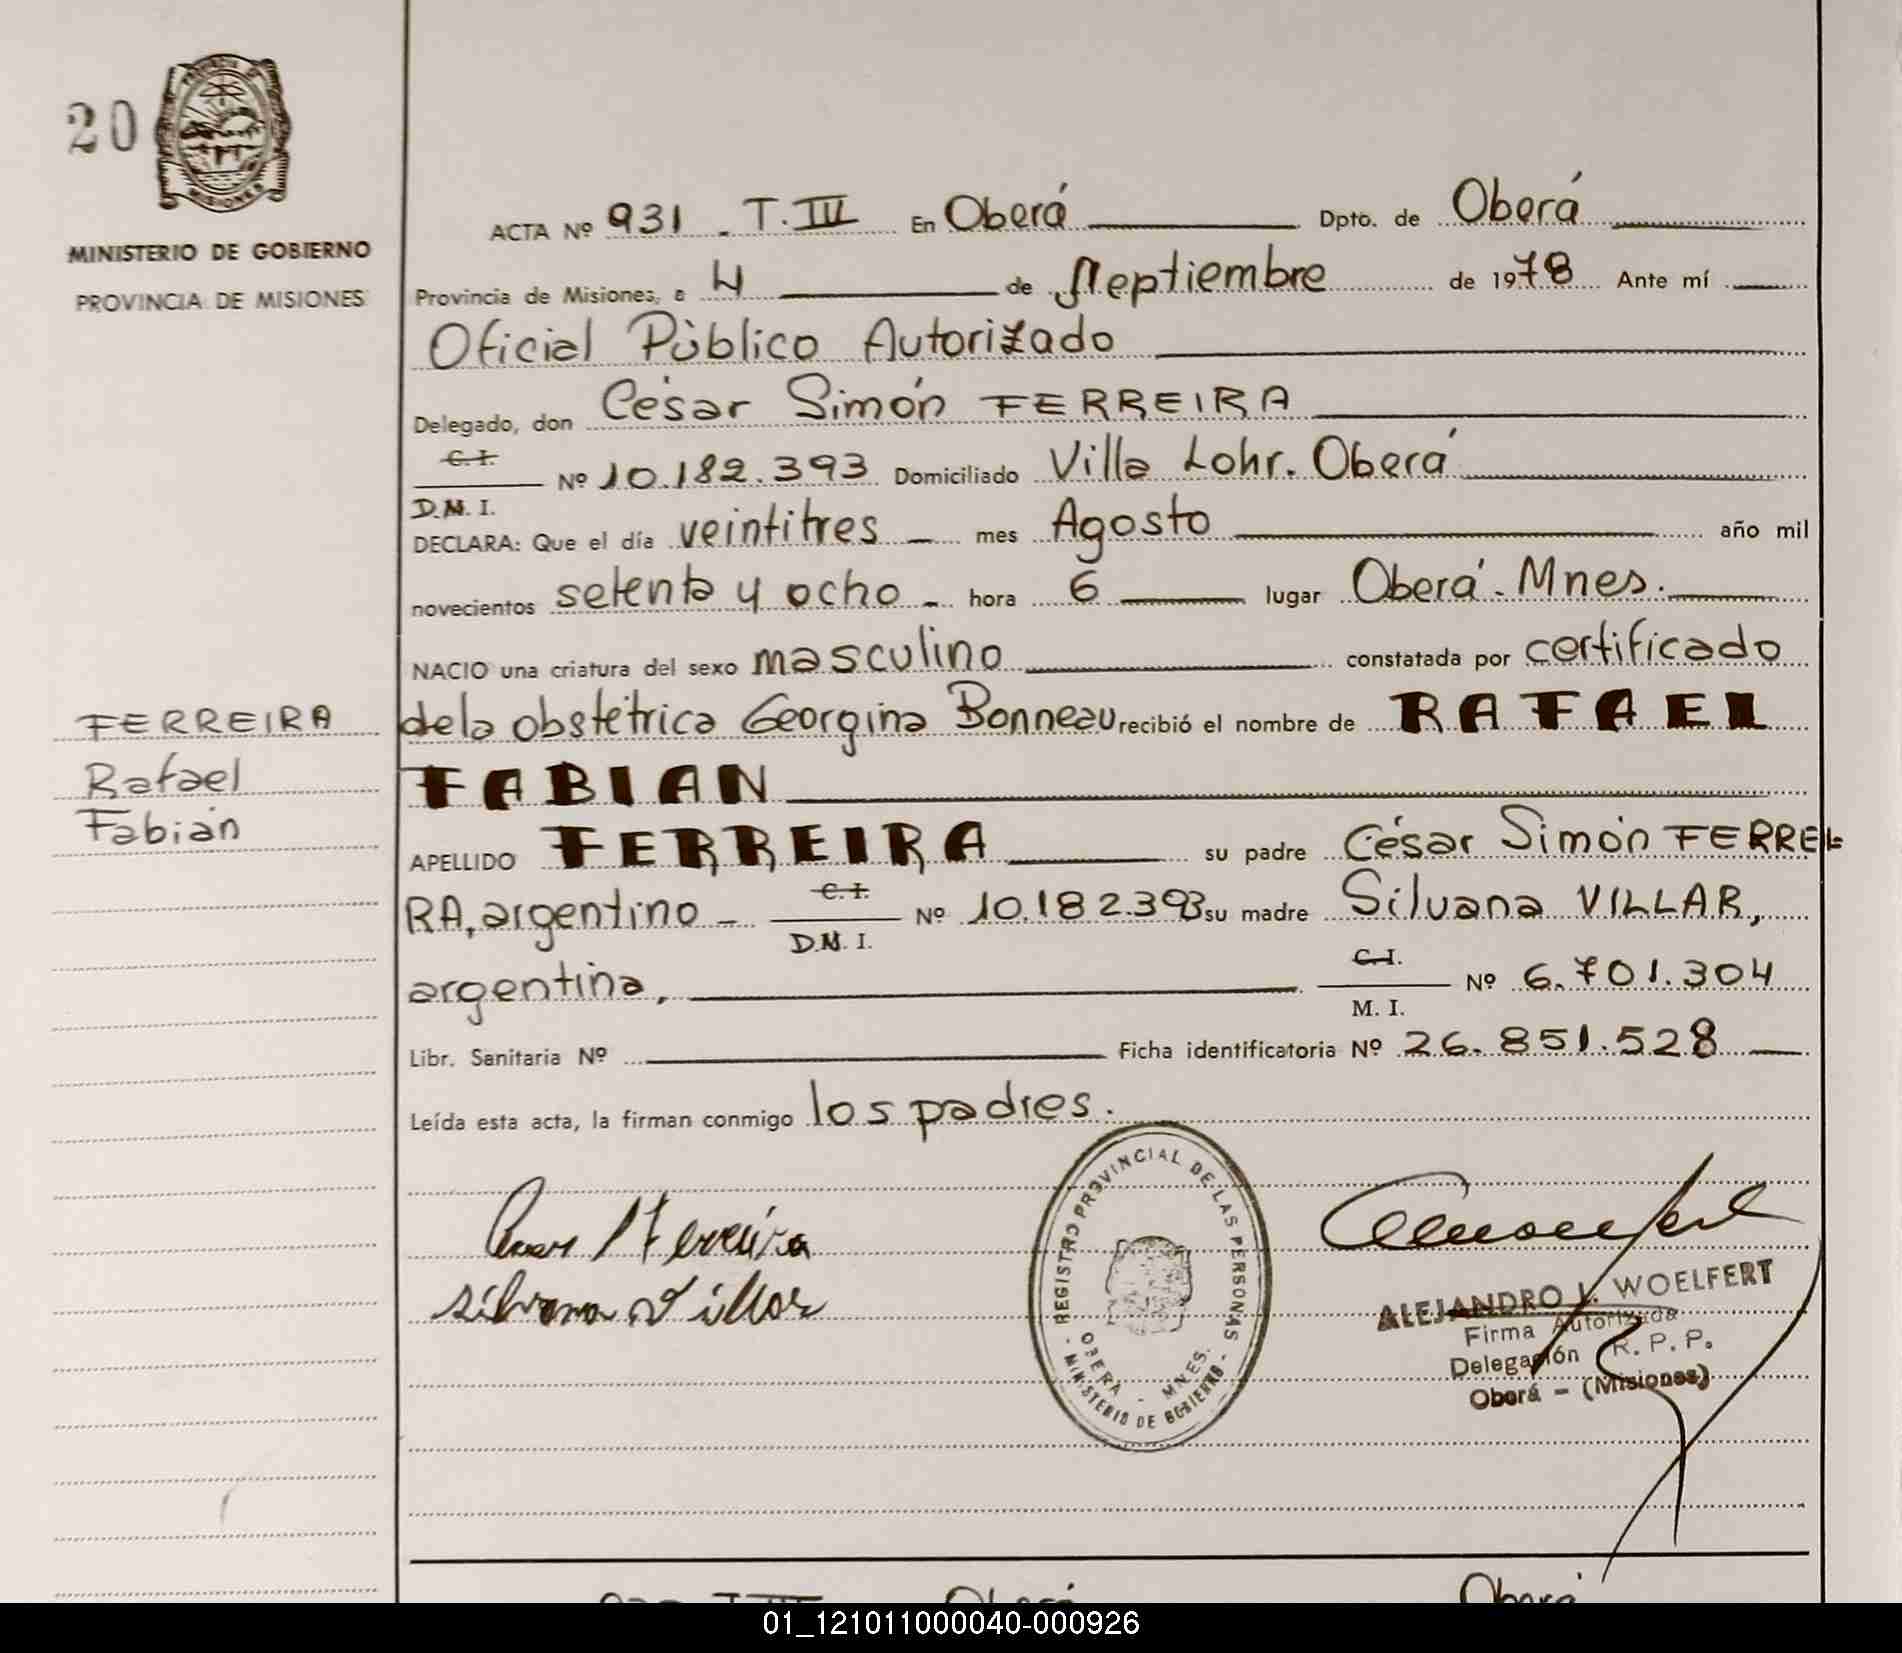 20
PROVINCIA DE
MISIONES
MINISTERIO DE GOBIERNO
PROVINCIA DE MISIONES
ACTA Nº 931 - T. III En Oberá Dpto. de Oberá
Provincia de Misiones, a 4 de Septiembre de 1978 Ante mí
Oficial Público Autorizado
Delegado, don César Simón FERREIRA
C. I.
Nº 10.182.393 Domiciliado Villa Lohr. Oberá
D.N. I.
DECLARA: Que el día veintitres - mes Agosto año mil
novecientos setenta y ocho - hora 6 lugar Oberá - Mnes.
NACIO una criatura del sexo masculino constatada por certificado
dela obstétrica Georgina Bonneau recibió el nombre de RAFAEL
FABIAN
FERREIRA
Rafael
Fabián
APELLIDO FERREIRA su padre César Simón FERREI-
RA, argentino - C. I. Nº 10.182.393 su madre Silvana VILLAR,
D.N. I.
argentina, C. I. Nº 6.701.304
M. I.
Libr. Sanitaria Nº Ficha identificatoria Nº 26.851.528
Leída esta acta, la firman conmigo los padres.
Cesar S Ferreira
Silvana Villar
REGISTRO PROVINCIAL DE LAS PERSONAS
OBERA - MNES.
- MINISTERIO DE GOBIERNO -
ALEJANDRO L. WOELFERT
Firma Autorizada
Delegación R. P. P.
Oberá - (Misiones)
Oberá Oberá
01_121011000040-000926